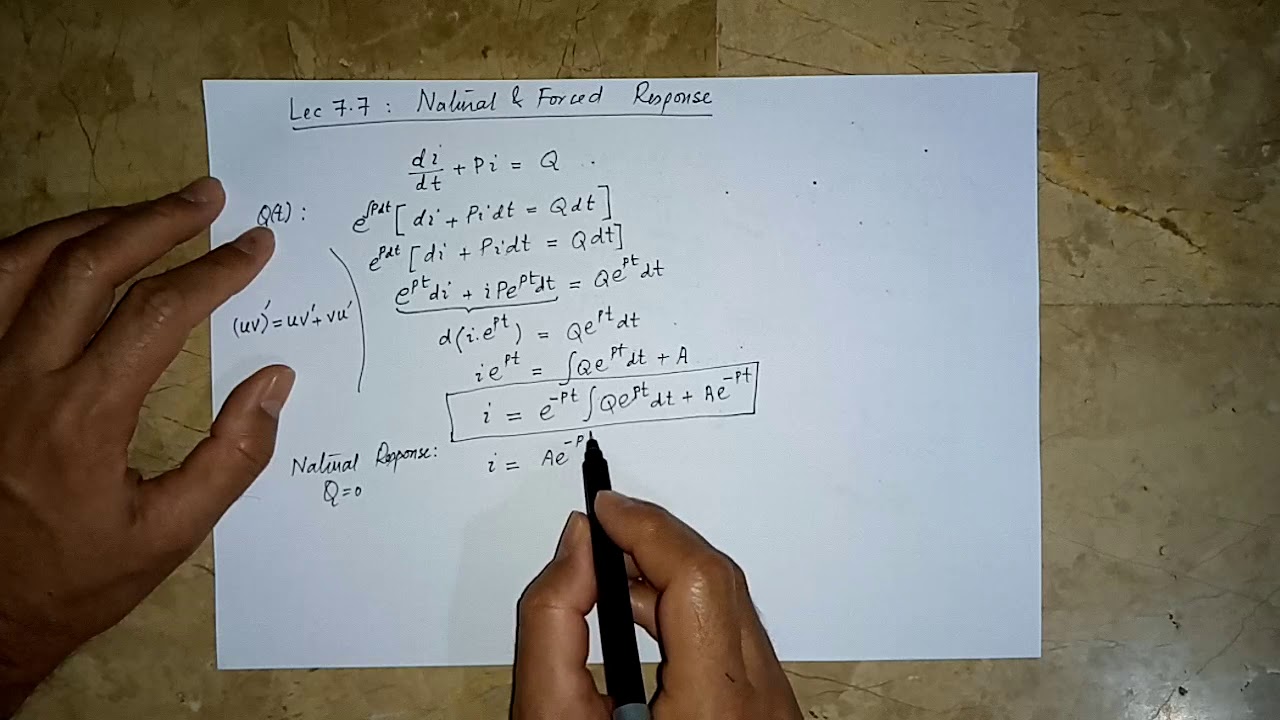 Lec 7.7 : Natural & Forced Response
di/dt + Pi = Q
Q(t) :
e^∫Pdt [ di + Pidt = Qdt ]
e^Pdt [ di + Pidt = Qdt ]
e^Pt di + iPe^Pt dt = Qe^Pt dt
(uv)' = uv' + vu'
d(i.e^Pt) = Qe^Pt dt
ie^Pt = ∫Qe^Pt dt + A
i = e^-Pt ∫Qe^Pt dt + Ae^-Pt
Natural Response: i = Ae^-P
Q=0